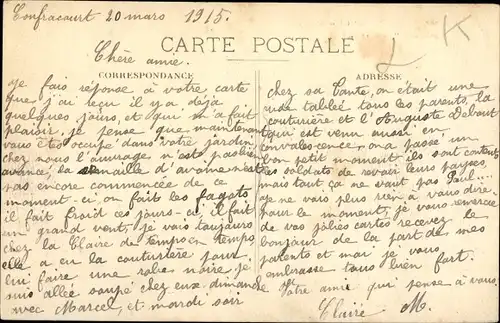 Confracourt 20 mars 1915.
Chère amie.
CARTE POSTALE
CORRESPONDANCE
Je fais réponse à votre carte
que j'ai reçu il y a déjà
quelques jours, et qui m'a fait
plaisir, je pense que maintenant
vous êtes occupé dans votre jardin
chez nous l'ouvrage n'est pas bien
avancé, la semaille d'avoine n'est
pas encore commencée de ce
moment-ci on fait les fagots
il fait froid ces jours-ci, il fait
un grand vent, je vais toujours
chez la Claire de temps en temps
elle a eu la couturière pour
lui faire une robe noire, je
suis allée soupé chez eux dimanche
avec Marcel, et mardi soir
ADRESSE
chez sa Tante, on était une
rude tablée tous les parents, la
couturière et l'Auguste Debout
qui est venu aussi en
convalescence, on a passé un
bon petit moment, ils sont contents
les soldats de revoir leurs payses,
mais tout ça ne vaut pas Paul...
je ne vois plus rien à vous dire
pour le moment, je vous remercie
de vos jolies cartes recevez le
bonjour de la part de mes
parents et moi je vous
embrasse tous bien fort.
Votre amie qui pense à vous.
Claire M.
K